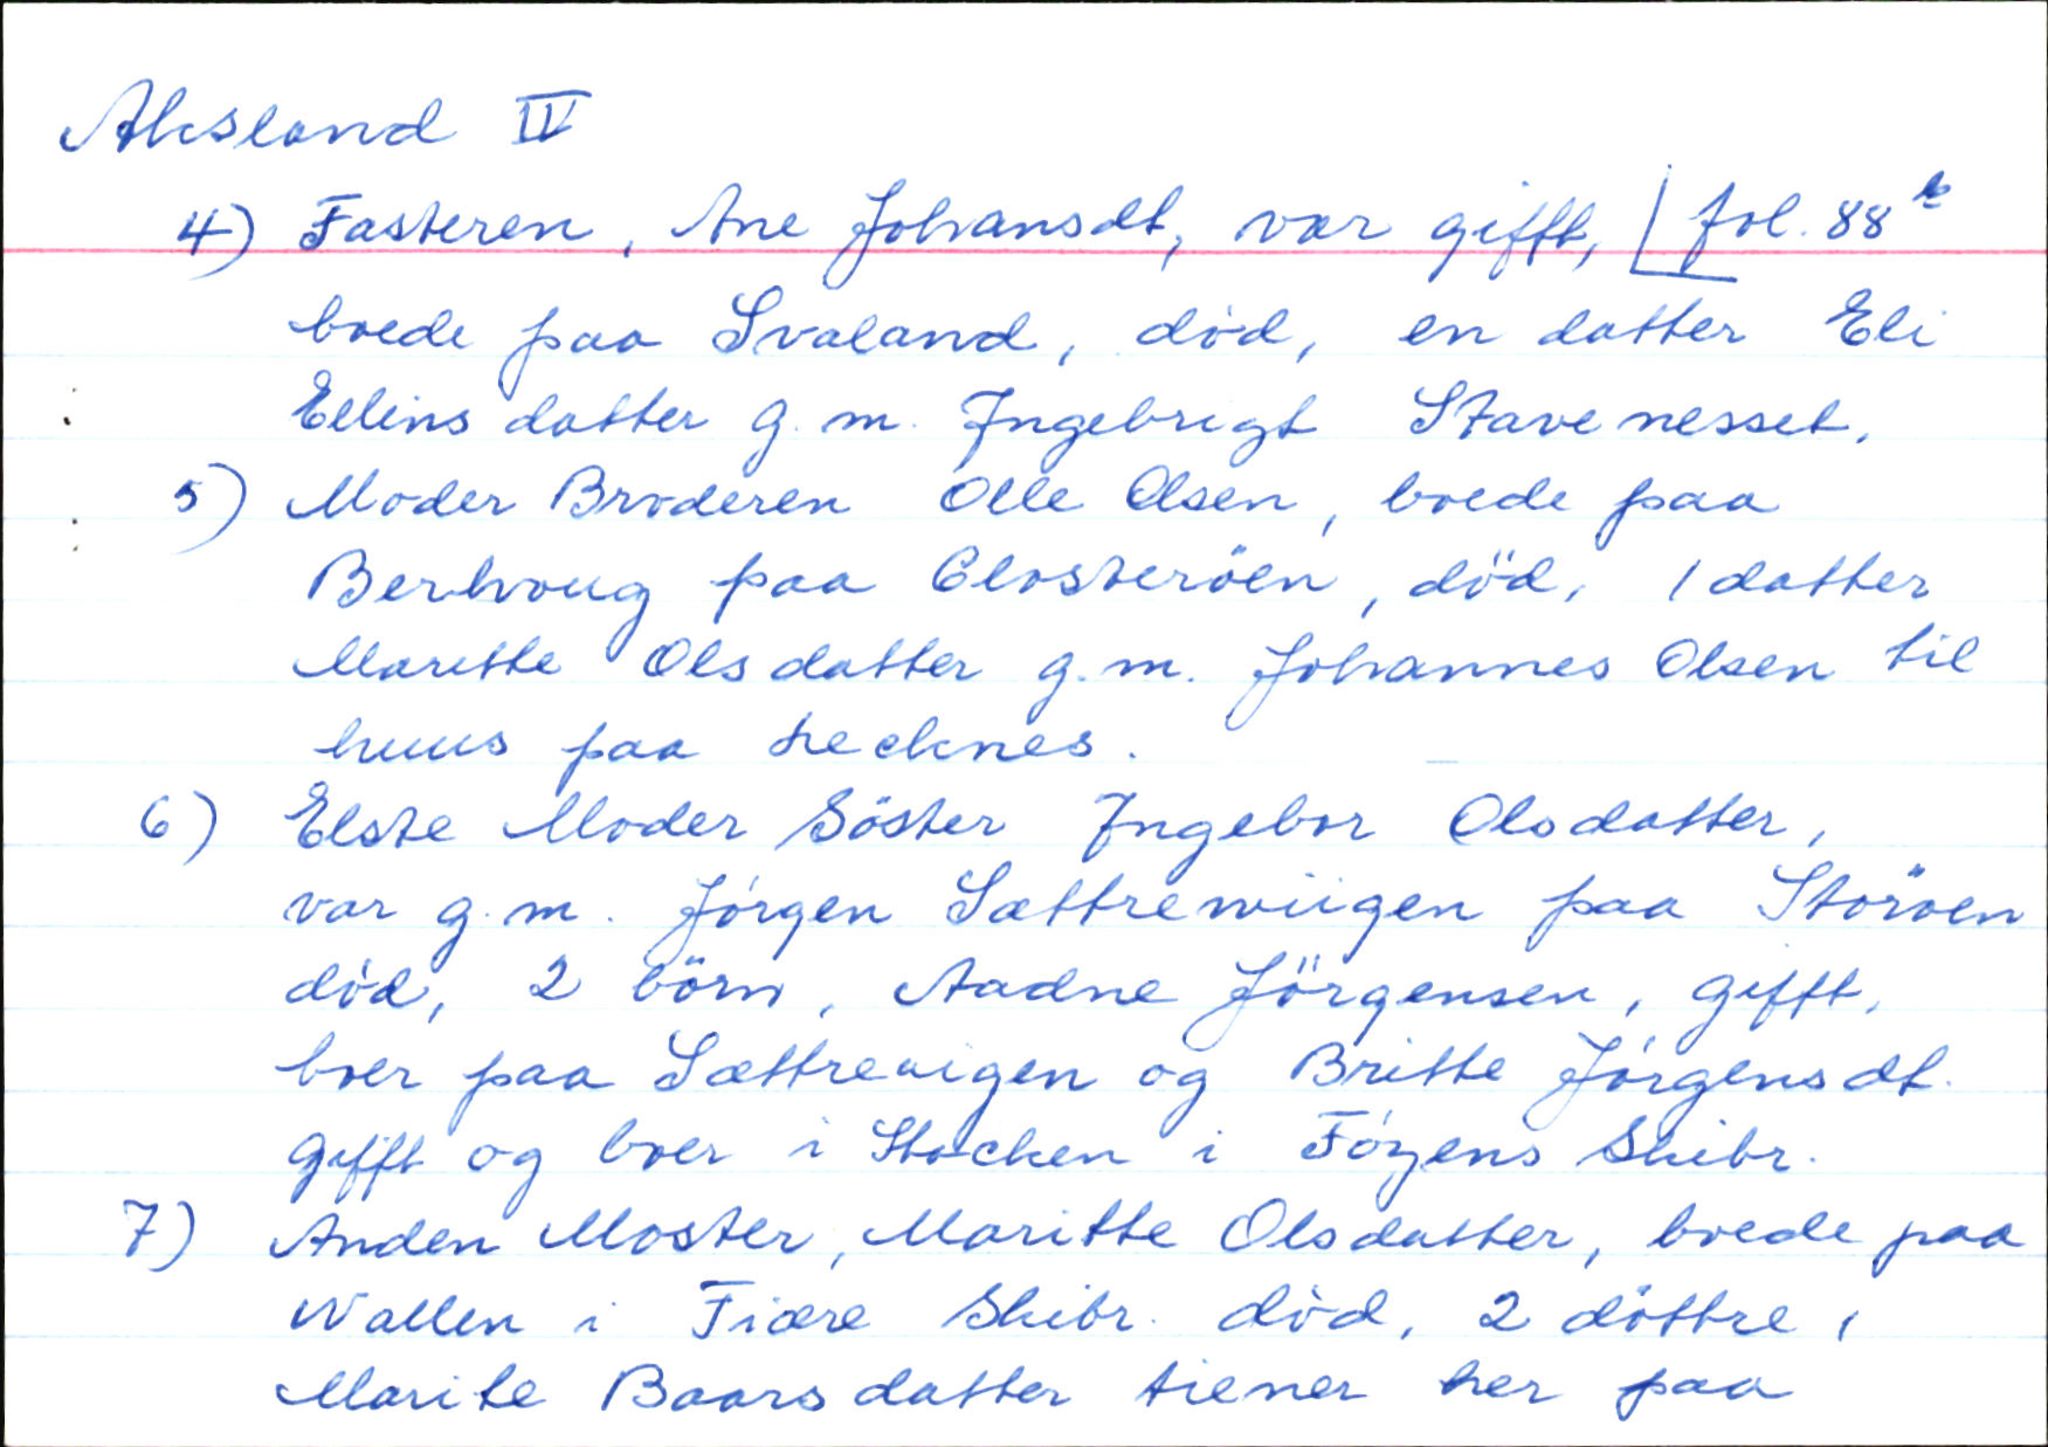 Aksland IV
4) Fasteren, Ane Johansdt, var gifft, fol. 88b
boede paa Svaland, död, en datter Eli
Ellins datter g. m. Ingebrigt Stavenesset.
5) Moder Broderen Olle Olsen, boede paa
Berhoug paa Closteröen, död, 1 datter
Maritte Olsdatter g. m. Johannes Olsen til
huus paa Lecknes.
6) Elste Moder Söster Ingebor Olsdatter,
var g. m. Jörgen Sættrewiigen paa Storöen
död, 2 börn, Aadne Jörgensen, gifft,
boer paa Sættrevigen og Britte Jörgensdt.
gifft og boer i Stocken i Föyens Skibr.
7) Anden Moster, Maritte Olsdatter, boede paa
Wallen i Fiære Skibr. död, 2 döttre,
Marite Baarsdatter tiener her paa